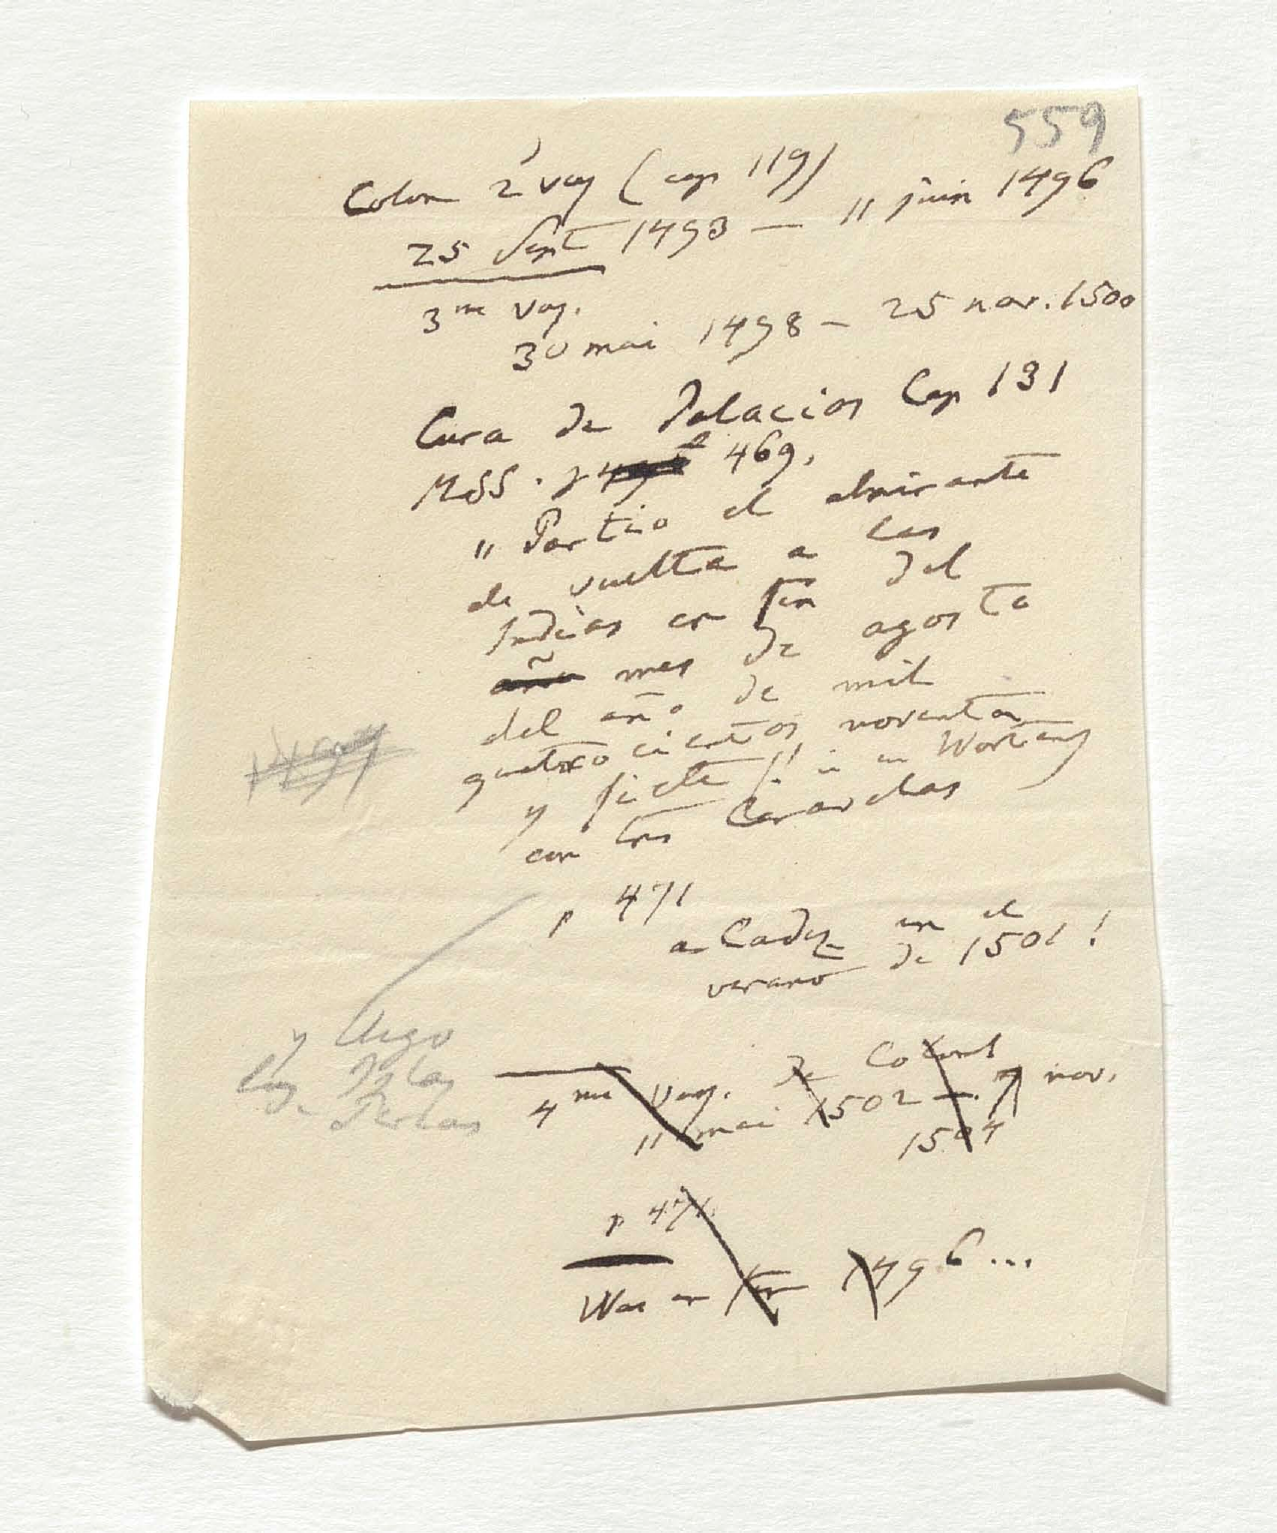 559
Colon 2 voy (cap 119)
25 Sept 1493 — 11 juin 1496
3me voy.
30 mai 1498 — 25 nov. 1500
Cura de Palacios Cap 131
MSS. p 469.
" Partio el almirante
de vuelta a las
Indias en fin del
año mes de agosto
del año de mil
quatrocientos noventa
y siete !! in Worten
con tres Caravelas
p 471
a Cadiz en el
verano de 1501!
y llego
las Islas
Perlas
4me voy. de Colomb
11 mai 1502 — 7 nov.
1504
p 471.
War er 1496...